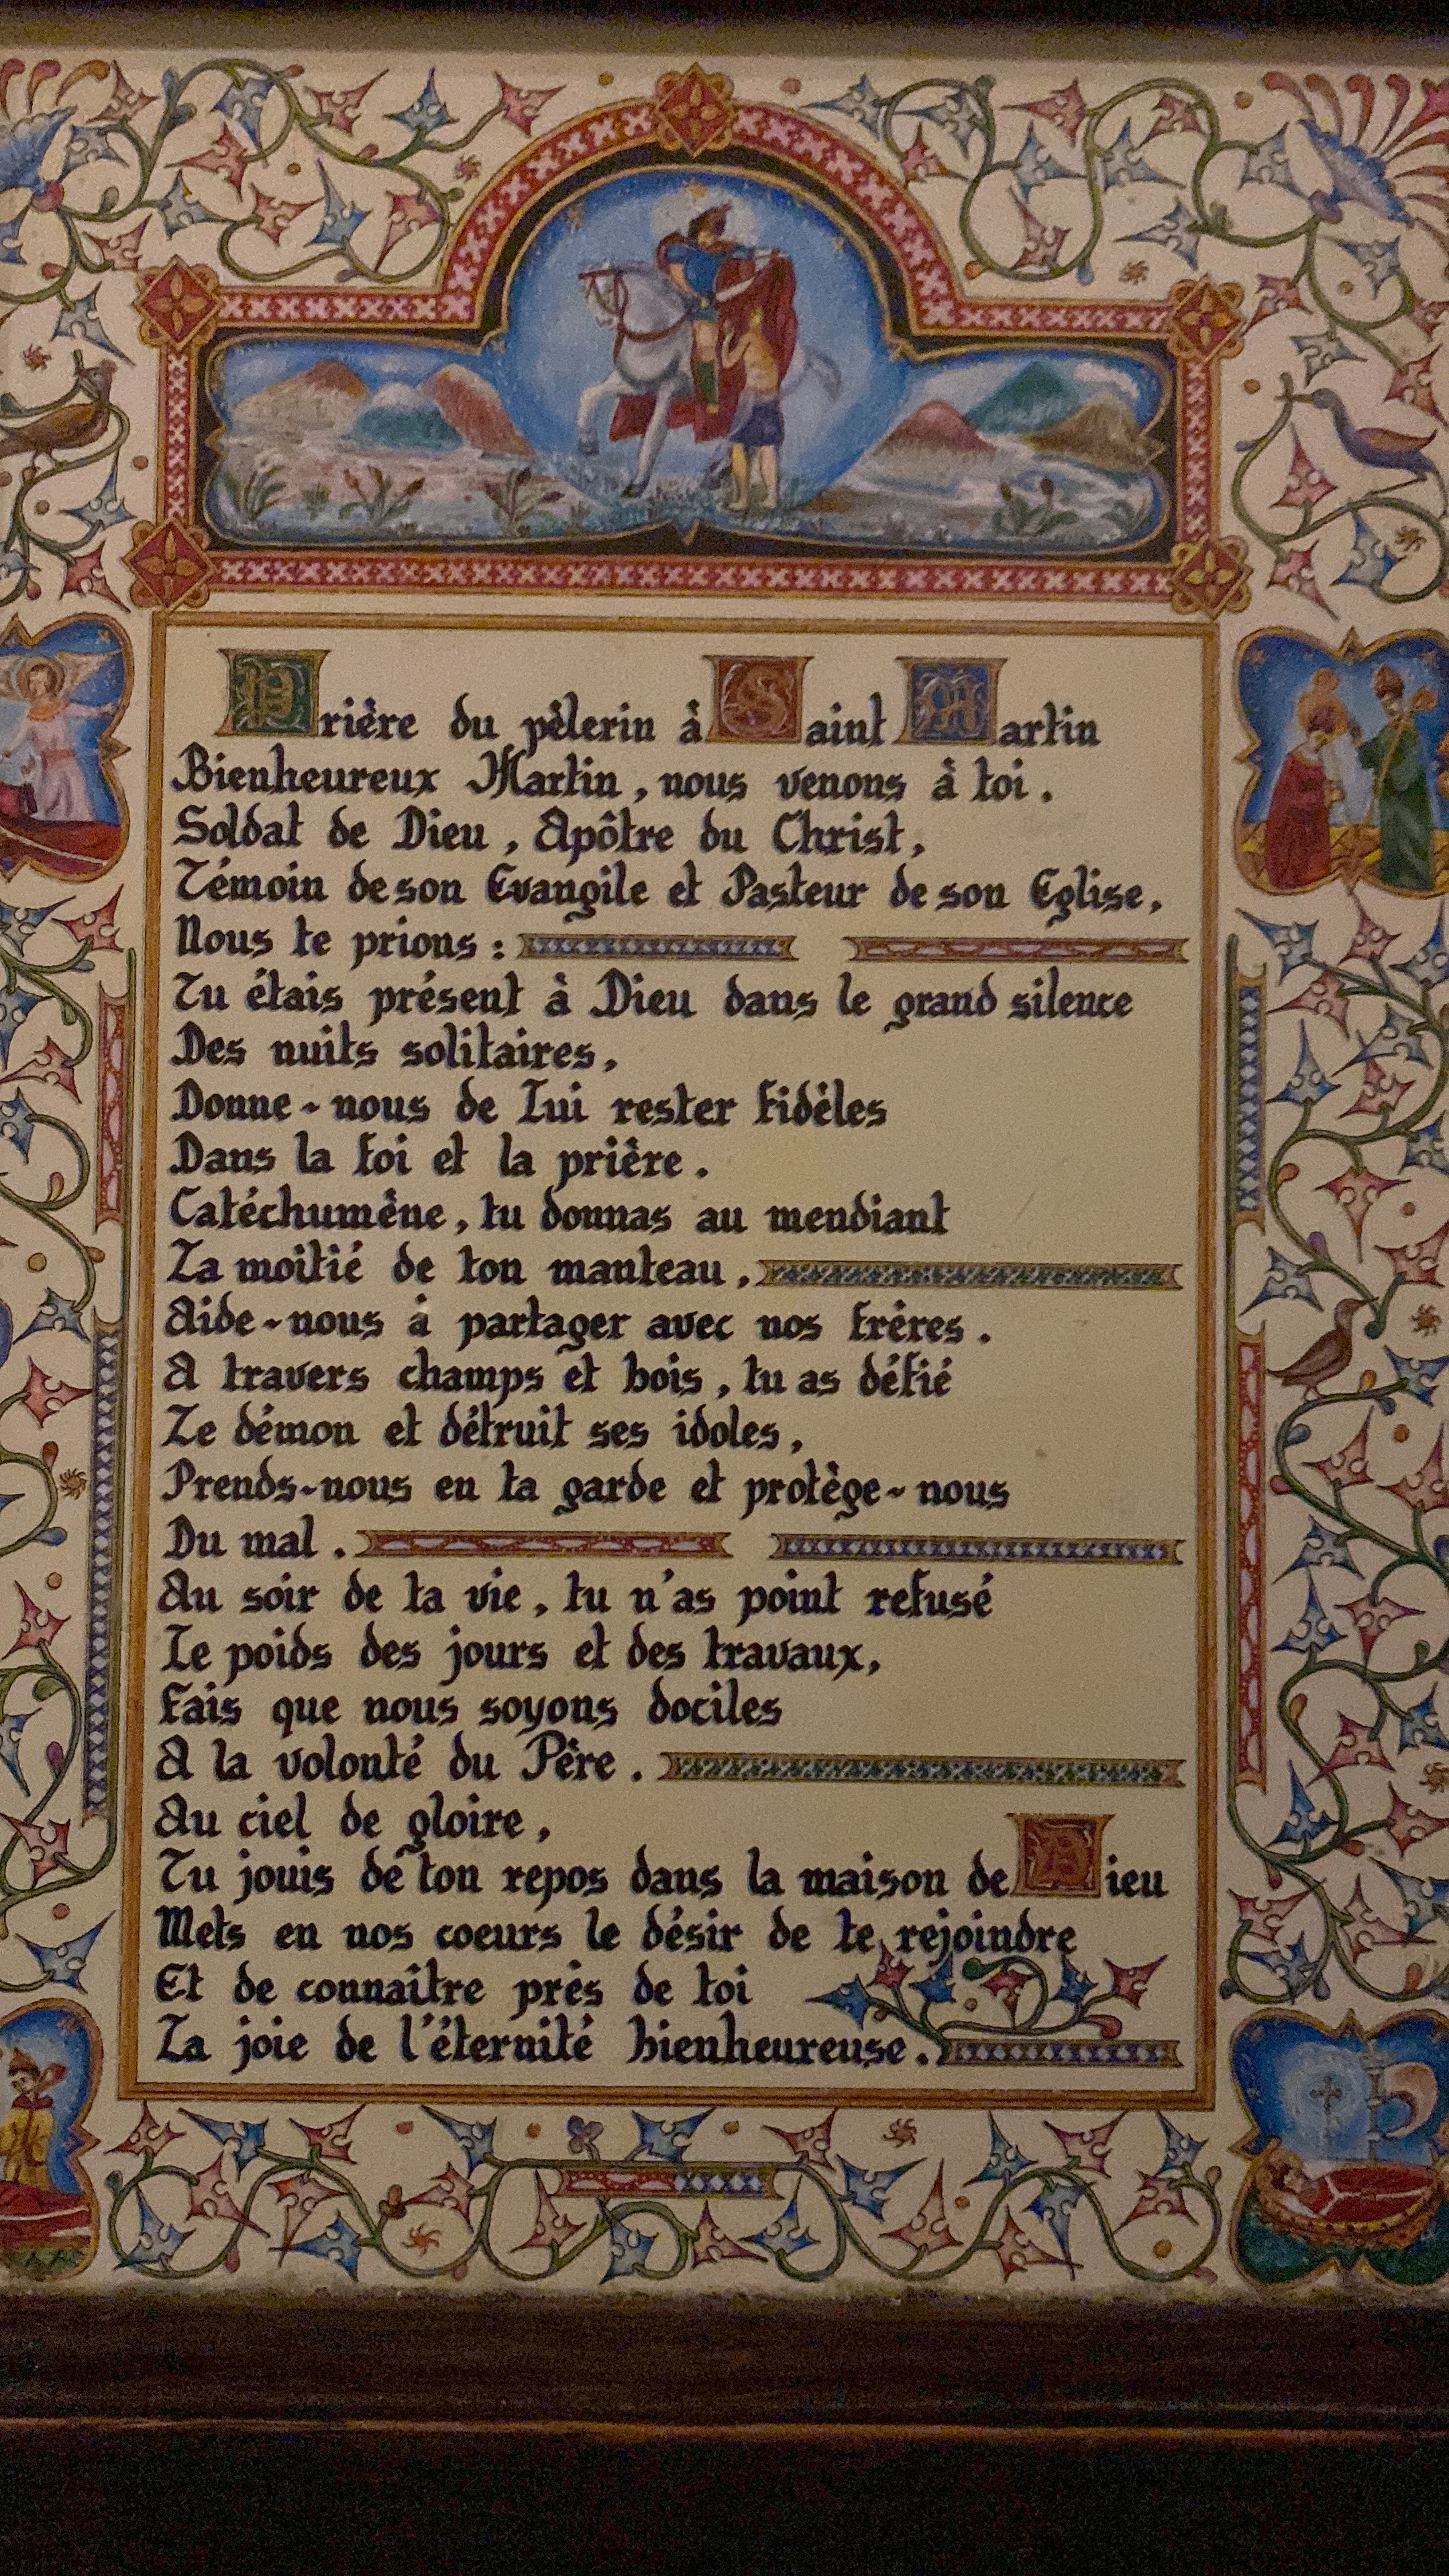 Prière du pèlerin à Saint Martin
Bienheureux Martin, nous venons à toi.
Soldat de Dieu, Apôtre du Christ,
Témoin de son Evangile et Pasteur de son Eglise,
Nous te prions :
Tu étais présent à Dieu dans le grand silence
Des nuits solitaires,
Donne-nous de Lui rester fidèles
Dans la foi et la prière.
Catéchumène, tu donnas au mendiant
La moitié de ton manteau,
Aide-nous à partager avec nos frères.
A travers champs et bois, tu as défié
Le démon et détruit ses idoles,
Prends-nous en ta garde et protège-nous
Du mal.
Au soir de ta vie, tu n'as point refusé
Le poids des jours et des travaux,
Fais que nous soyons dociles
A la volonté du Père.
Au ciel de gloire,
Tu jouis de ton repos dans la maison de Dieu
Mets en nos coeurs le désir de te rejoindre
Et de connaître près de toi
La joie de l'éternité bienheureuse.